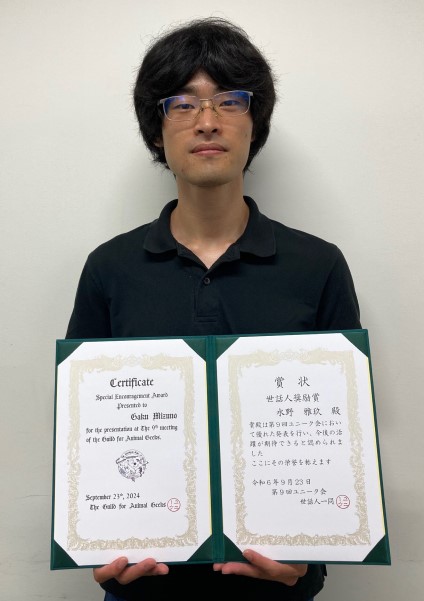 Certificate
Special Encouragement Award
Presented to
Gaku Mizuno
for the presentation at The 9th meeting
of the Guild for Animal Geeks.
September 23rd, 2024
The Guild for Animal Geeks
賞状
世話人奨励賞
水野 雅玖 殿
貴殿は第9回ユニーク会におい
て優れた発表を行い、今後の活
躍が期待できると認められま
した
ここにその栄誉を称えます
令和6年9月23日
第9回ユニーク会
世話人一同